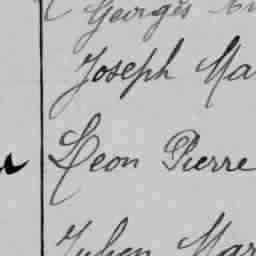 Georges
Joseph Ma
Leon Pierre
Julien Mar